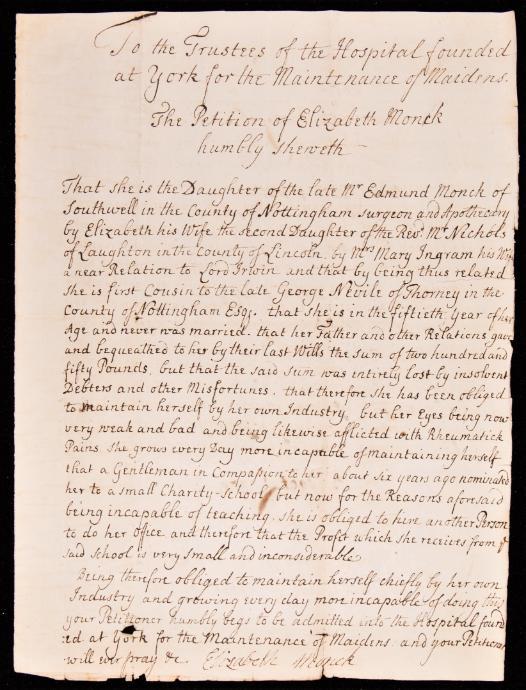 To the Trustees of the Hospital founded
at York for the Maintenance of Maidens.
The Petition of Elizabeth Monck
humbly sheweth
That she is the Daughter of the late Mr Edmund Monck of
Southwell in the County of Nottingham Surgeon and Apothecary
by Elizabeth his Wife the second Daughter of the Revd Mr Nichols
of Laughton in the County of Lincoln, by Mrs Mary Ingram his Wife
a near Relation to Lord Irwin and that by being thus related
she is first Cousin to the late George Nevile of Thorney in the
County of Nottingham Esqr. that she is in the fiftieth Year of her
Age and never was married. that her Father and other Relations gave
and bequeathed to her by their last Wills the sum of two hundred and
fifty Pounds, but that the said sum was entirely lost by insolvent
Debters and other Misfortunes. that therefore she has been obliged
to maintain herself by her own Industry, but her Eyes being now
very weak and bad and being likewise afflicted with Rheumatick
Pains she grows every Day more incapable of maintaining herself
that a Gentleman in Compassion to her about six years ago nominated
her to a small Charity-School, but now for the Reasons aforesaid
being incapable of teaching, she is obliged to hire another Person
to do her office and therefore that the Profit which she receives from ye
said school is very small and inconsiderable
Being therefore obliged to maintain herself chiefly by her own
Industry and growing every day more incapable of doing this
your Petitioner humbly begs to be admitted into the Hospital found
:ed at York for the Maintenance of Maidens. and your Petitioner
will ever pray &c. Elizabeth Monck